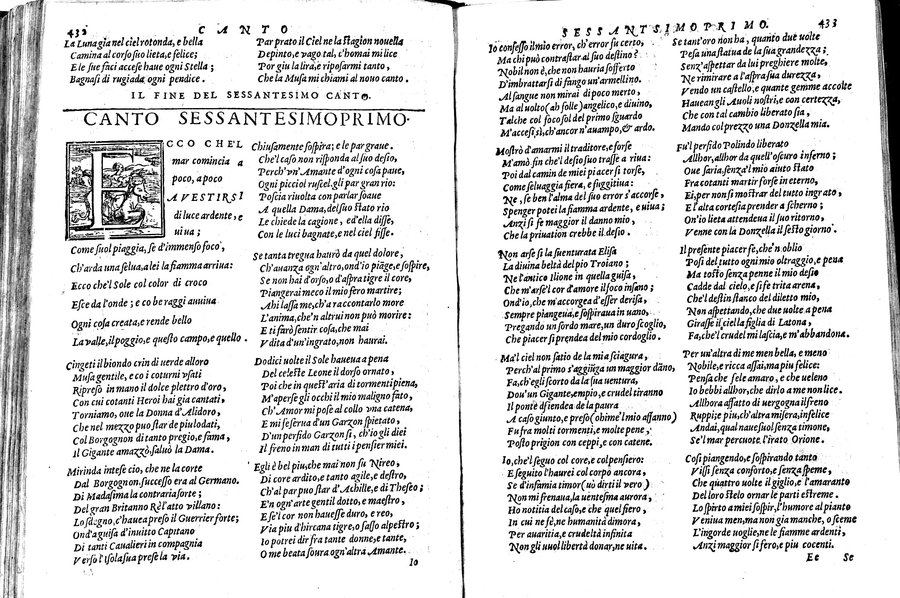 432 CANTO
La Luna già nel ciel rotonda, e bella
Camina al corso suo lieta, e felice;
E le sue faci accese haue ogni Stella;
Bagnasi di rugiada ogni pendice.
Par prato il Ciel ne la stagion nouella
Depinto, e vago tal, c'homai mi lice
Por giu la lira, e riposarmi tanto,
Che la Musa mi chiami al nouo canto.
IL FINE DEL SESSANTESIMO CANTO.
CANTO SESSANTESIMOPRIMO.
ECCO CHE'L
mar comincia a
poco, a poco
A VESTIRSI
di luce ardente, e
uiua;
Come suol piaggia, se d'immenso foco,
Ch'arda una selua, a lei la fiamma arriua:
Ecco che'l Sole col color di croco
Esce da l'onde; e co be raggi auuiua
Ogni cosa creata, e rende bello
La valle, il poggio, e questo campo, e quello.
Cingeti il biondo crin di verde alloro
Musa gentile, e co i coturni vsati
Ripreso in mano il dolce plettro d'oro,
Con cui cotanti Heroi hai gia cantati,
Torniamo, oue la Donna d'Alidoro,
Che nel mezzo pur star de piu lodati,
Col Borgognon di tanto pregio, e fama,
Il Gigante amazzò, saluò la Dama.
Mirinda intese cio, che ne la corte
Dal Borgognon, successo era al Germano.
Di Madasima la contraria sorte;
Del gran Britanno Rè l'atto villano:
Lo sdegno, c'hauea preso il Guerrier forte;
Ond'a guisa d'inuitto Capitano
Di tanti Caualieri in compagnia
Verso l'Isola sua prese la via.
Chiusamente sospira; e le par graue.
Che'l caso non risponda al suo desio,
Perch'vn'Amante d'ogni cosa paue,
Ogni picciol ruscel, gli par gran rio:
Poscia riuolta con parlar soaue
A quella Dama, del suo stato rio
Le chiede la cagione, ed ella disse,
Con le luci bagnate, e nel ciel fisse.
Se tanta tregua haurò da quel dolore,
Ch'auanza ogn'altro, ond'io piāge, e sospire,
Se non hai d'orso, o d'aspra tigre il core,
Piangerai meco il mio fero martire;
Ahi lassa me, ch'a raccontarlo more
L'anima, che n'altrui non può morire:
E ti farò sentir cosa, che mai
Vdita d'un'ingrato, non haurai.
Dodici uolte il Sole haueua a pena
Del celeste Leone il dorso ornato,
Poi che in quest'aria di tormenti piena,
M'aperse gli occhi il mio maligno fato,
Ch'Amor mi pose al collo vna catena,
E mi fe serua d'un Garzon spietato,
D'un perfido Garzon si, ch'io gli diei
Il freno in man di tutti i pensier miei.
Egli è bel piu, che mai non fu Nireo,
Di core ardito, e tanto agile, e destro,
Ch'al par puo star d'Achille, e di Theseo;
E'n ogn'arte gentil dotto, e maestro,
E se'l cor non hauesse duro, e reo,
Via piu d'hircana tigre, o sasso alpestro;
Io potrei dir fra tante donne, e tante,
O me beata soura ogn'altra Amante.
Io
SESSANTSIMOPRIMO. 433
Io confesso il mio error, ch'error fu certo,
Ma chi può contrastar al suo destino?
Nobil non è, che non hauria sofferto
D'imbrattarsi di fango un'armellino.
Al sangue non mirai di poco merto,
Ma al uolto (ah folle) angelico, e diuino,
Talche col foco sol del primo sguardo
M'accesi, sì, ch'ancor n'auampo, & ardo.
Mostrò d'amarmi il traditore, e forse
M'amò fin che'l desio suo trasse a riua:
Poi dal camin de miei piacer si torse,
Come seluaggia fiera, e fuggitiua:
Ne, se ben l'alma del suo error s'accorse,
Spenger potei la fiamma ardente, e uiua;
Anzi si fe maggior il danno mio,
Che la priuation crebbe il desio.
Non arse si la suenturata Elisa
La diuina beltà del pio Troiano;
Ne l'antico Ilione in quella guisa,
Che m'arse'l cor d'amore il foco insano;
Ond'io, che m'accorgea d'esser derisa,
Sempre piangeua, e sospiraua in uano,
Pregando un sordo mare, un duro scoglio,
Che piacer si prendea del mio cordoglio.
Ma'l ciel non satio de la mia sciagura,
Perch'al primo s'aggiūga un maggior dāno,
Fa, ch'egli scorto da la sua uentura,
Dou'un Gigante, empio, e crudel tiranno
Il ponte difendea de la paura
A caso giunto, e preso (ohime'l mio affanno)
Fu fra molti tormenti, e molte pene,
Posto prigion con ceppi, e con catene.
Io, che'l seguo col core, e col pensiero:
E seguito l'haurei col corpo ancora,
Se d'infamia timor (uò dirti il vero)
Non mi frenaua, la uentesima aurora,
Ho notitia del caso, e che quel fiero,
In cui ne fè, ne humanità dimora,
Per auaritia, e crudeltà infinita
Non gli uuol libertà donar, ne uita.
Se tant'oro non ha, quanto due uolte
Pesa una statua de la sua grandezza;
Senz'aspettar da lui preghiere molte,
Ne rimirare a l'aspra sua durezza,
Vendo un castello, e quante gemme accolte
Haueangli Auoli nostri, e con certezza,
Che con tal cambio liberato sia,
Mando col prezzo una Donzella mia.
Fu'l perfido Polindo liberato
Allhor, allhor da quell'oscuro inferno;
Oue saria, senza'l mio aiuto stato
Fra cotanti martir forse in eterno,
Ei, per non si mostrar del tutto ingrato,
E l'alta cortesia prender a scherno;
On'io lieta attendeua il suo ritorno,
Venne con la Donzella il sesto giorno.
Il presente piacer fe, ch'en'oblio
Posi del tutto ogni mio oltraggio, e pena
Ma tosto senza penne il mio desio
Cadde dal cielo, e si fe trita arena,
Che'l destin stanco del diletto mio,
Non aspettando, che due uolte a pena
Girasse il ciel la figlia di Latona,
Fa, che'l crudel mi lascia, e m'abbandona.
Per un'altra di me men bella, e meno
Nobile, e ricca assai, ma piu felice:
Pensa che fele amaro, e che ueleno
Io bebbi allhor, che dirlo a me non lice.
Allhora affatto di uergogna il freno
Ruppi; e piu, ch'altra misera, infelice
Andai, qual naue suol senza timone,
Se'l mar percuote l'irato Orione.
Cosi piangendo, e sospirando tanto
Vissi senza conforto, e senza speme,
Che quattro uolte il giglio, e l'amaranto
Del loro stelo ornar le parti estreme.
Lo spirto a miei sospir, l'humore al pianto
Veniua men, ma non gia manche, o sceme
L'ingorde uoglie, ne le fiamme ardenti,
Anzi maggior si fero, e piu cocenti.
Ee Se